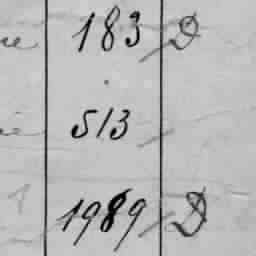 183 D
513
1989 D